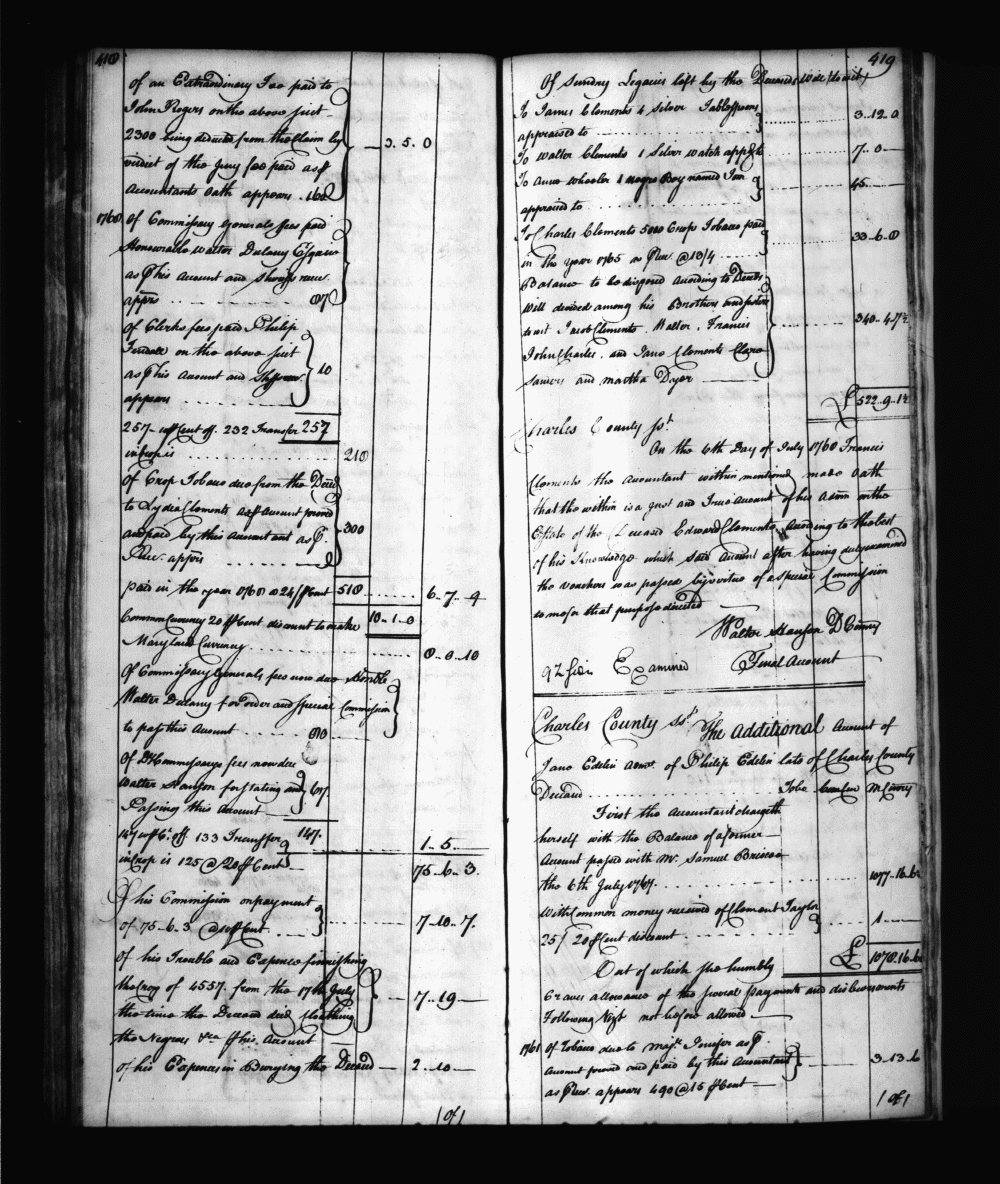 418
of an Extraordinary Fee paid to
John Rogers on the above suit
2300 being deducted from the Claim by
verdict of the Jury fee paid as ⅌
Accountants Oath appears . 160 — 3 . 5 . 0
1768 of Commissary Generals fees paid
Honourable Walter Dulany Esquire
as ⅌ his Account and Sheriffs recr
apprs ... 87
of Clerks fees paid Philip
Fendall on the above suit
as ⅌ his Account and
appears ... 10
257 ⅌ Cent off. 232 Transfer 257
in Crop is ... 210
of Crop Tobacco due from the Decd
to Lydia Clements as ⅌ Account proved
and paid by this Accountant as ⅌
Recr. appirs ... 300
paid in the year 1768 @ 24/ ⅌ Cent 510 ... 6 . 7 . 9
Common Currency 20 ⅌ Cent discount to make 10 . 1 . 0
Maryland Currency ... 8 . 0 . 10
Of Commissary Generals fees now due Honble
Walter Dulany for order and Special Commission
to pass this Account ... 80
Of D Commissarys fees now due
Walter Hanson for Stating and
Passing this Account — 67
147 ⅌ Ct. off 133 Transfer 147.
in Crop is 125 @ 20 ⅌ Cent — 1 . 5 . —
75 . 6 . 3 .
Of his Commission on payment
of 75 . 6 . 3 @ 10 ⅌ Cent ... 7 . 10 . 7 .
of his Trouble and Expence finnishing
the Crop of 4557 from the 17th July
the time the Deceased died cloathing
the Negroes &ca ⅌ his Account — 7 . 19 —
of his Expences in Burying the Deceasd — 2 . 10 . —
1 of 1
419
Of Sundry Legacies left by the Deceaseds Will (to wit)
To James Clements 4 Silver Tablespoons
appraised to ... 3 . 12 . 0
To Walter Clements 1 Silver watch appd to ... 7 . 0 —
To Anne Wheeler 1 negro Boy named
appraised to ... 45 . —
To Charles Clements 5000 Crop Tobacco paid
in the year 1765 as ⅌ Recr @ 13/4 ... 33 . 6 . 8
Balance to be disposed According to Deceds
Will devised among his Brothers and sisters
to wit Jacob Clements . Walter . Francis
John Charles . and Jane Clements Clare
Sanders and Martha Dyer — 340 . 4 . 7½
£ 522 . 9 . 1½
Charles County Sst.
On the 6th Day of July 1768 Francis
Clements the Accountant within mentioned made Oath
that the within is a just and True Account of his Admn on the
Estate of the Deceased Edward Clements According to the best
of his Knowledge which said Account after having duly examined
the vouchers was passed by virtue of a special Commission
to me for that purpose directed
Walter Hanson D Comry
Examined Final Account
Charles County Sst. The Additional Account of
Jane Edelin Admx. of Philip Edelin late of Charles County
Deceased ... Tobo M Curry
First the Accountant chargeth
herself with the Balance of a former —
Account passed with Mr. Samuel Briscoe
the 6th July 1767 ... 1077 . 16 . 6½
With Common money received of Clement Taylor
25/ 20 ⅌ Cent discount ... 1 —
£ 1078 . 16 . 6½
Out of which she humbly
Craves allowance of the several payments and disbursements
Following Vizt not before allowed —
1761 of Tobacco due to Majr. Jenifer as ⅌
Account proved and paid by this Accountant
as ⅌ Recr. appears 490 @ 15 ⅌ Cent — 3 . 13 . 6
1 of 1